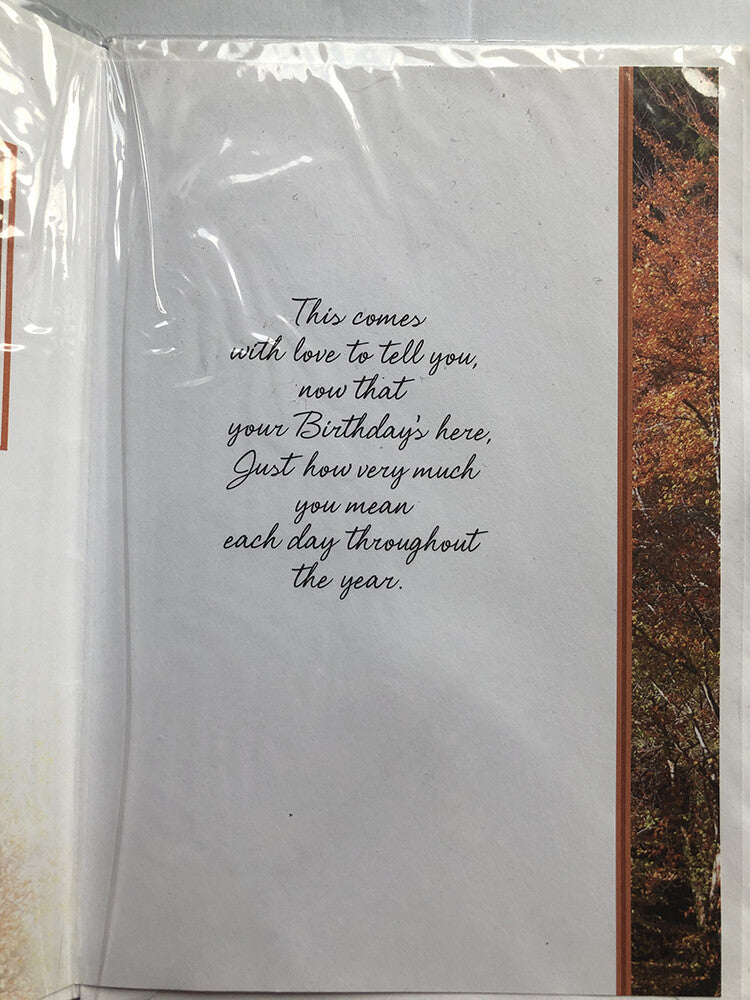 This comes
with love to tell you,
now that
your Birthday's here,
Just how very much
you mean
each day throughout
the year.